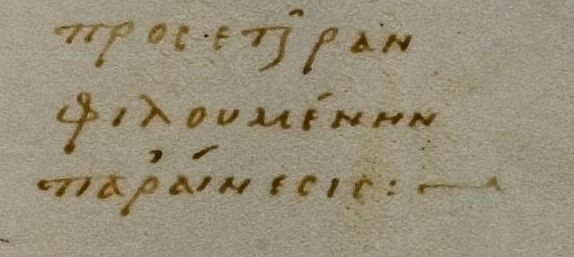 προς
φιλουμένην
παραίνεσις:—